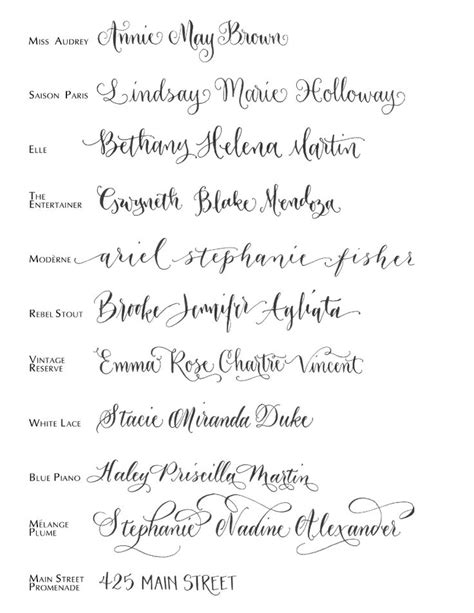 Miss Audrey Annie May Brown
Saison Paris Lindsay Marie Holloway
Elle Bethany Helena Martin
The Entertainer Gwyneth Blake Mendoza
Modèrne ariel stephanie fisher
Rebel Stout Brooke Jennifer Agliata
Vintage Reserve Emma Rose Chartre Vincent
White Lace Stacie Miranda Duke
Blue Piano Haley Priscilla Martin
Mélange Plume Stephanie Nadine Alexander
Main Street Promenade 425 MAIN STREET